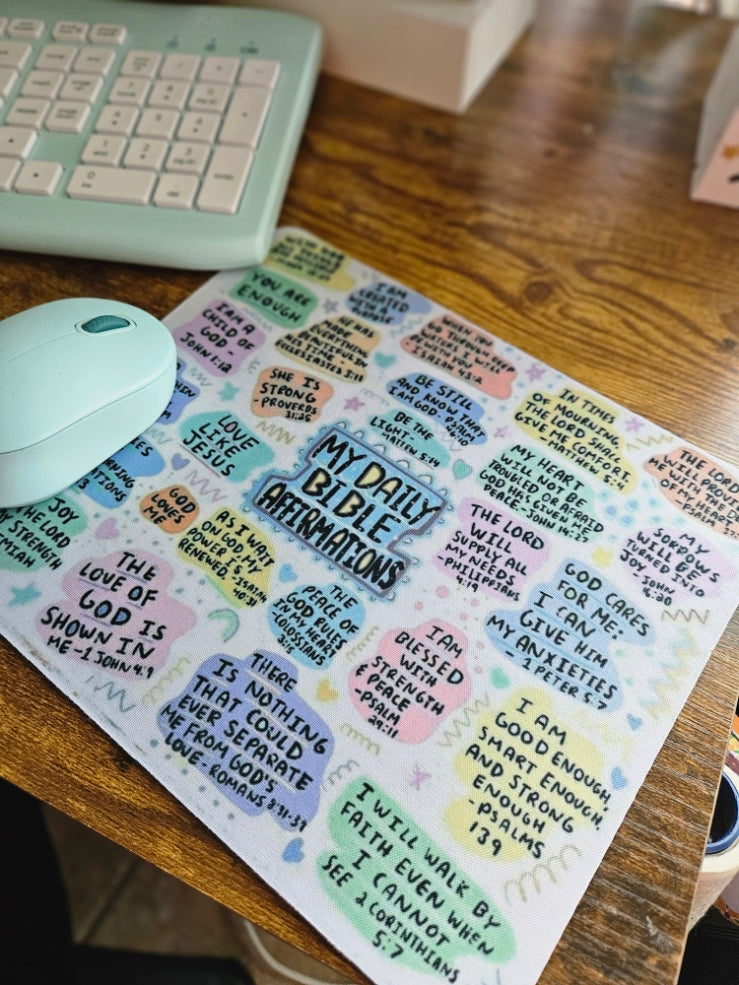 YOU ARE
ENOUGH
I AM
CREATED
I AM A
CHILD OF
GOD -
JOHN 1:12
HE HAS
MADE
EVERYTHING
BEAUTIFUL IN
HIS TIME -
ECCLESIASTES 3:11
WHEN YOU
GO THROUGH DEEP
WATERS, I WILL
BE WITH YOU
- ISAIAH 43:2
SHE IS
STRONG
- PROVERBS
31:25
BE STILL
AND KNOW THAT
I AM GOD - PSALM
46:10
IN TIMES
OF MOURNING
THE LORD SHALL
GIVE ME COMFORT.
- MATTHEW 5:4
BE THE
LIGHT -
LOVE
LIKE
JESUS
MY DAILY
BIBLE
AFFIRMATIONS
MY HEART
WILL NOT BE
TROUBLED OR AFRAID
GOD HAS GIVEN ME
PEACE - JOHN 14:27
THE LORD
WILL PROVIDE
ME WITH THE
OF MY HEART
PSALM
MY
SORROWS
WILL BE
TURNED INTO
JOY - JOHN
THE LORD
WILL
SUPPLY ALL
MY NEEDS
- PHILIPPIANS
4:19
GOD
LOVES
ME
AS I WAIT
ON GOD, MY
POWER IS
RENEWED. - ISAIAH
40:31
JOY
THE LORD
STRENGTH
EMIAH
GOD CARES
FOR ME;
I CAN
GIVE HIM
MY ANXIETIES
- 1 PETER 5:7
THE
LOVE OF
GOD IS
SHOWN IN
ME - 1 JOHN 4:9
THE
PEACE OF
GOD RULES
IN MY HEART
COLOSSIANS
I AM
BLESSED
WITH
STRENGTH
& PEACE
- PSALM
29:11
THERE
IS NOTHING
THAT COULD
EVER SEPARATE
ME FROM GOD'S
LOVE - ROMANS 8:31-39
I AM
GOOD ENOUGH,
SMART ENOUGH,
AND STRONG
ENOUGH
- PSALMS
139
I WILL WALK BY
FAITH EVEN WHEN
I CANNOT
SEE 2 CORINTHIANS
5:7